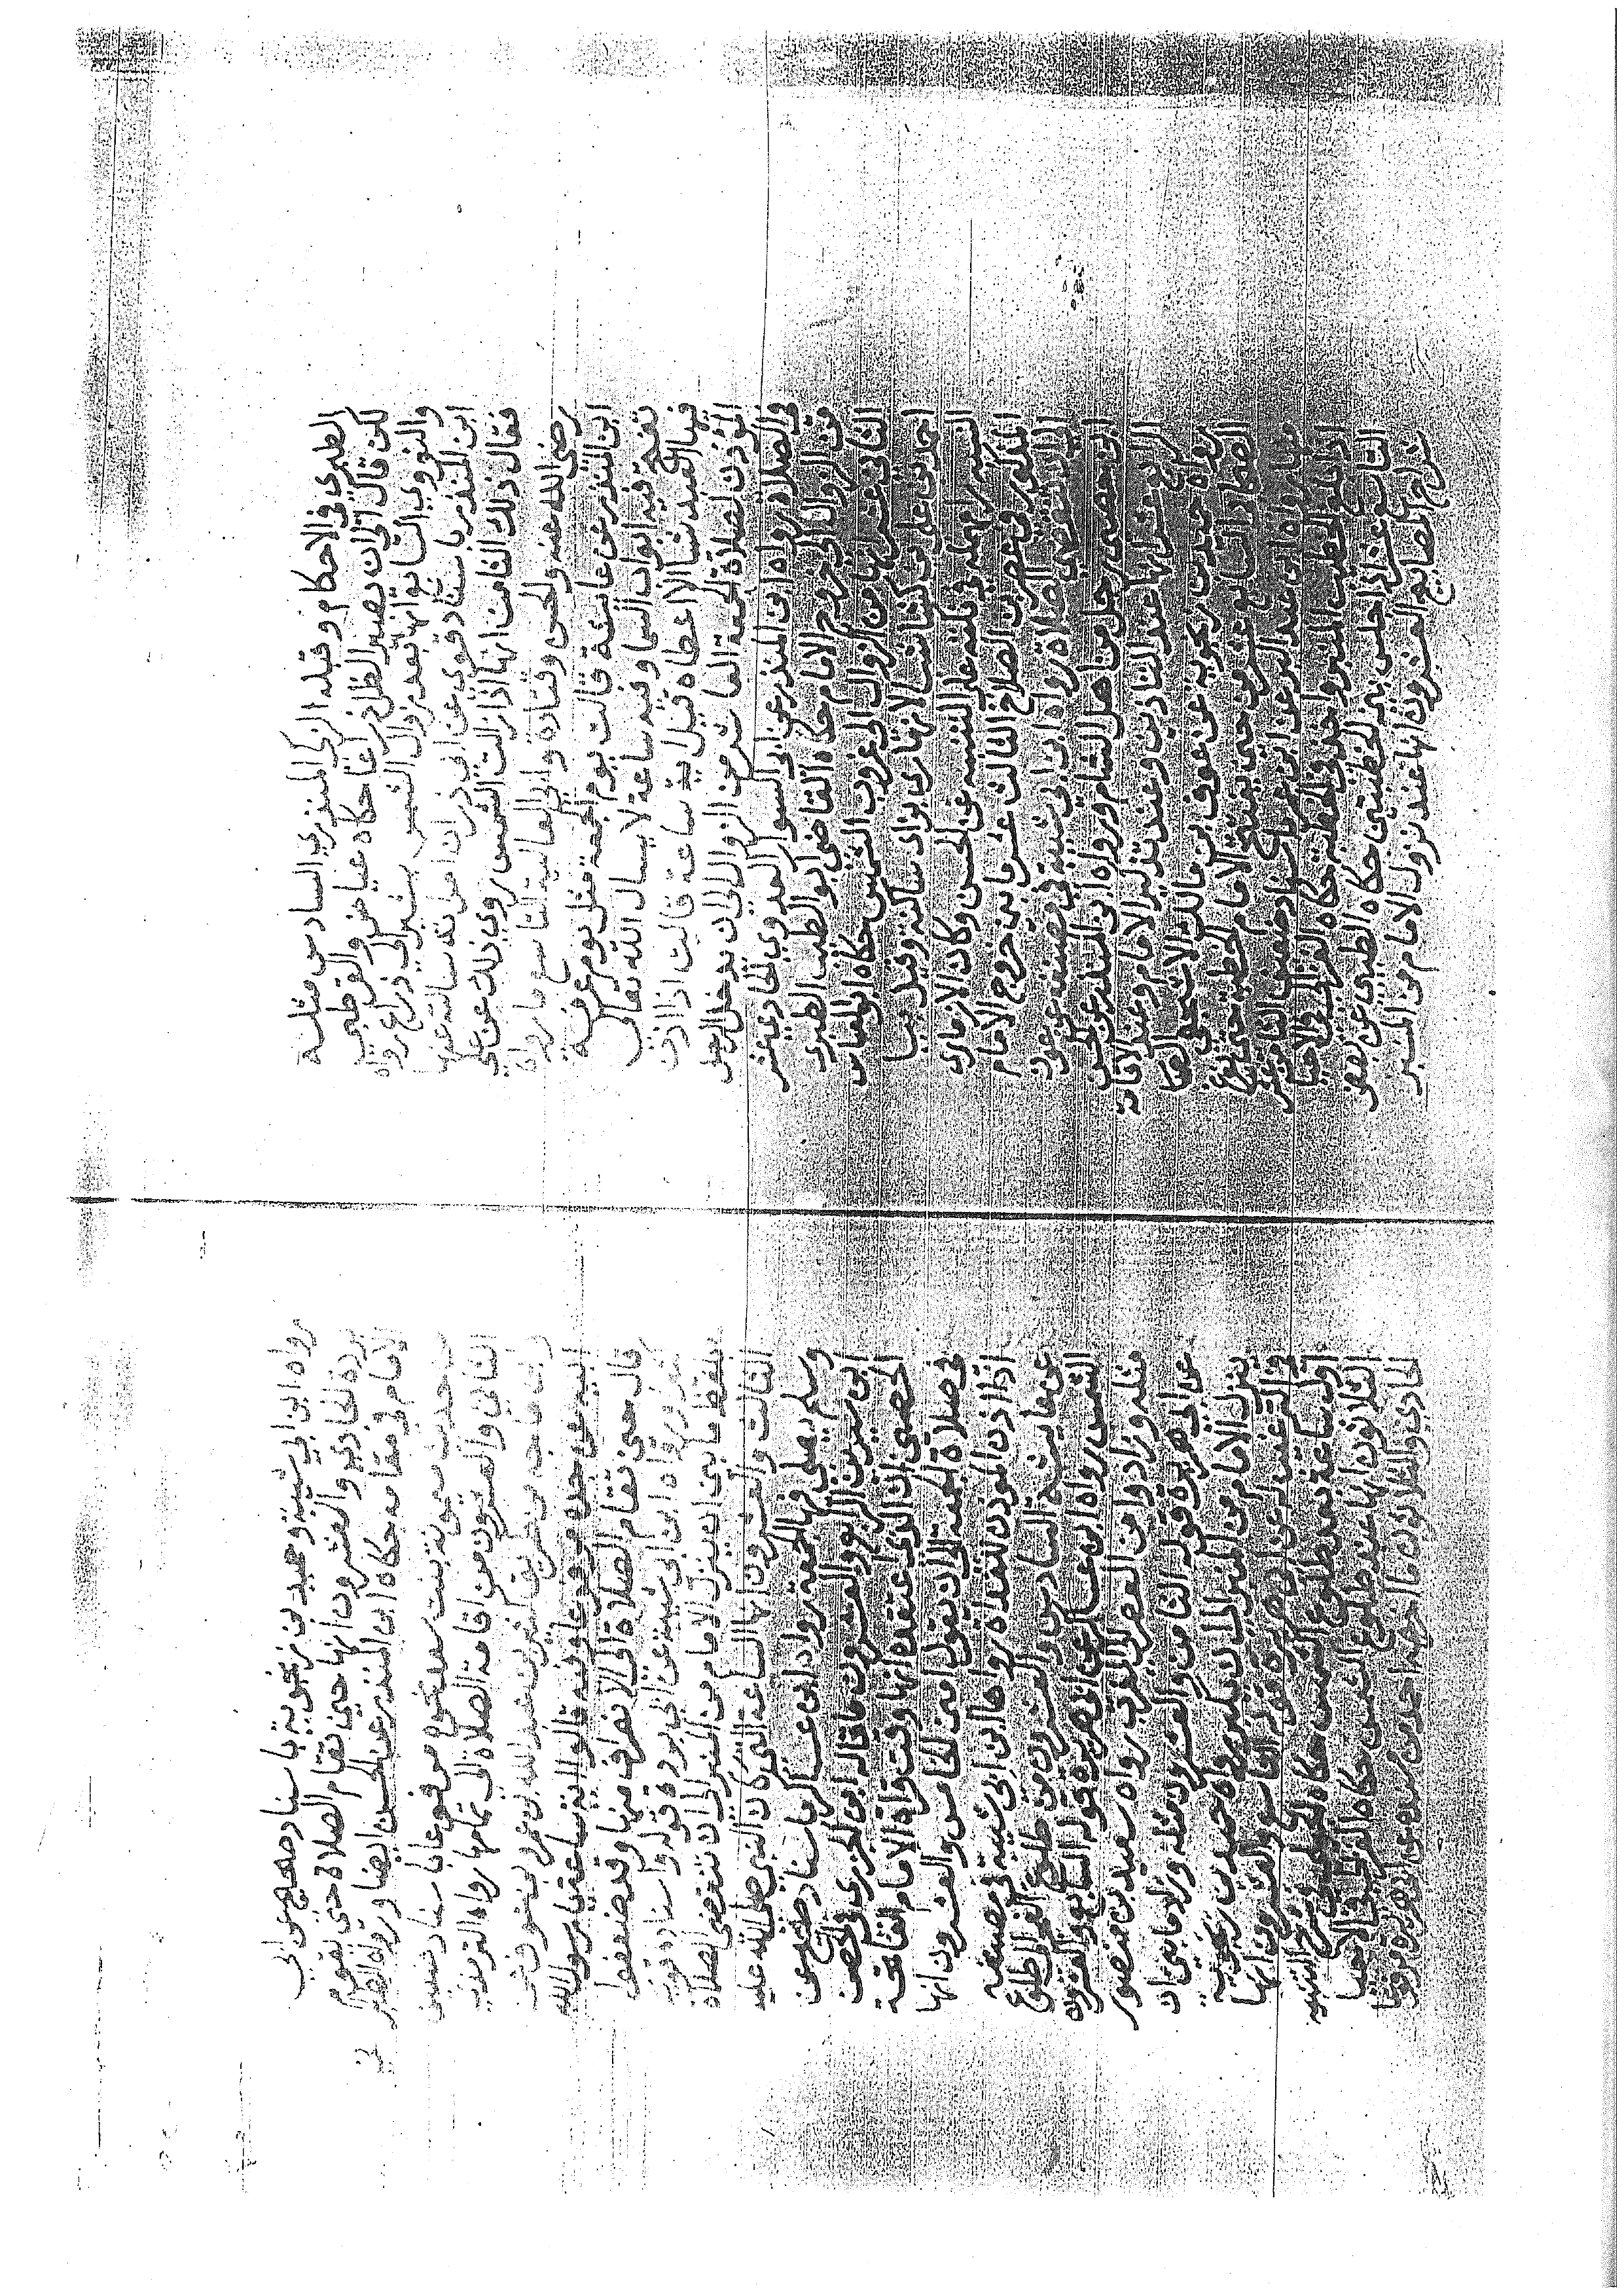 الطبري في الاحكام وقبله الزكي المنذري السادس مثله
لكن قال الى ان يصير الظل ذراعا حكاه عياض والقرطبي
والنووي السابع انها بعد زوال الشمس بشبر الى ذراع رواه
ابن المنذر باسناد قوي عن ابي ذر ان امراته سالته عنها
فقال ذلك الثامن انها اذا زالت الشمس روي ذلك عن علي
رضي الله عنه والحسن وقتادة وابي العالية التاسع ما رواه
ابن المنذر عن عائشة قالت يوم الجمعة مثل يوم عرفة
تفتح فيه ابواب السما وفيه ساعة لا يسال الله تعالى
فيها العبد شيا الا اعطاه قيل اية ساعة قالت اذا اذن
الموذن لصلاة الجمعة العاشر من الزوال الى ان يدخل الرجل
في الصلاة رواه ابن المنذر عن ابي السوار العدوي الحادي عشر
من الزوال الى خروج الامام حكاه القاضي ابو الطيب الطبري
الثاني عشر انها من الزوال الى غروب الشمس حكاه ابو العباس
احمد بن علي بن كشاسب الازماري بزاي ساكنة وقبل يا
النسبة را مهملة في نكته على التنبيه عن الحسن وكان الازماري
المذكور في عصر ابن الصلاح الثالث عشر ما بين خروج الامام
الى ان تنقضي الصلاة رواه ابن ابي شيبة في مصنفه عن عوف
ابن حصين رجل من اهل الشام ورواه ابن المنذر عن الحسن
الرابع عشر انها عند التاذين وعند تذكير الامام وعند الاقامة
رواه حميد بن زنجوية عن عوف بن مالك الاشجعي الصحا
الصحابي السابع عشر من حين يفتتح الامام الخطبة حتى يفرغ
منها رواه ابن عبد البر عن ابن عمر باسناد ضعيف الثامن عشر
اذا بلغ الخطيب المنبر واخذ في الخطبة حكاه الغزالي في الاحيا
التاسع عشر اذا جلس بين الخطبتين حكاه الطيبي عن بعض
شراح المصابيح العشرون انها عند نزول الامام من المنبر
رواه ابن ابي شيبة وحميد بن زنجوية باسناد صحيح عن ابي
بردة الحادي والعشرون انها حين تقام الصلاة حتى يقوم
الامام في مقامه حكاه ابن المنذر عن الحسن ايضا ورواه الطبر
من حديث ميمونة بنت سعد نحوه مرفوعا باسناد ضعيف
الثاني والعشرون من اقامة الصلاة الى تمامها رواه الترمذي
وابن ماجه من طريق كثير بن عبد الله بن عمرو بن عوف عن
ابيه عن جده مرفوعا وفيه قالوا اية ساعة يا رسول الله
قال حين تقام الصلاة الى الانصراف منها وقد ضعفوا
كثير ورواه ابن ابي شيبة عن ابي بردة قوله واسناده قوي
بلفظ ما بين ان ينزل الامام من المنبر الى ان تنقضي الصلاة
الثالث والعشرون انها الساعة التي كان النبي صلى الله عليه
وسلم يصلي فيها الجمعة رواه ابن عساكر باسناد صحيح عن
ابن سيرين الرابع والعشرون ما قاله ابن الجزري في الحصن
الحصين ان الذي اعتقده انها وقت قراة الامام الفاتحة
في صلاة الجمعة الى ان يقول امين الخامس والعشرون انها
اذا اذن الموذن للغداة رواها ابن ابي شيبة في مصنفه
عن عايشة السادس والعشرون من طلوع الفجر الى طلوع
الشمس رواه ابن عساكر عن ابي هريرة قوله السابع والعشرون
مثله وزاد ومن العصر الى المغرب رواه سعيد بن منصور
عن ابي هريرة قوله الثامن والعشرون مثله وزاد ما بين ان
ينزل الامام من المنبر الى ان يكبر رواه حميد بن زنجوية
في الترغيب له عن ابي هريرة قوله التاسع والعشرون انها
اول ساعة بعد طلوع الشمس حكاه الجيلي في شرح التنبيه
الثلاثون انها عند طلوع الشمس حكاه الغزالي في الاحيا
الحادي والثلاثون ما اخرجه احمد من مسنده عن ابي هريرة مرفوعا